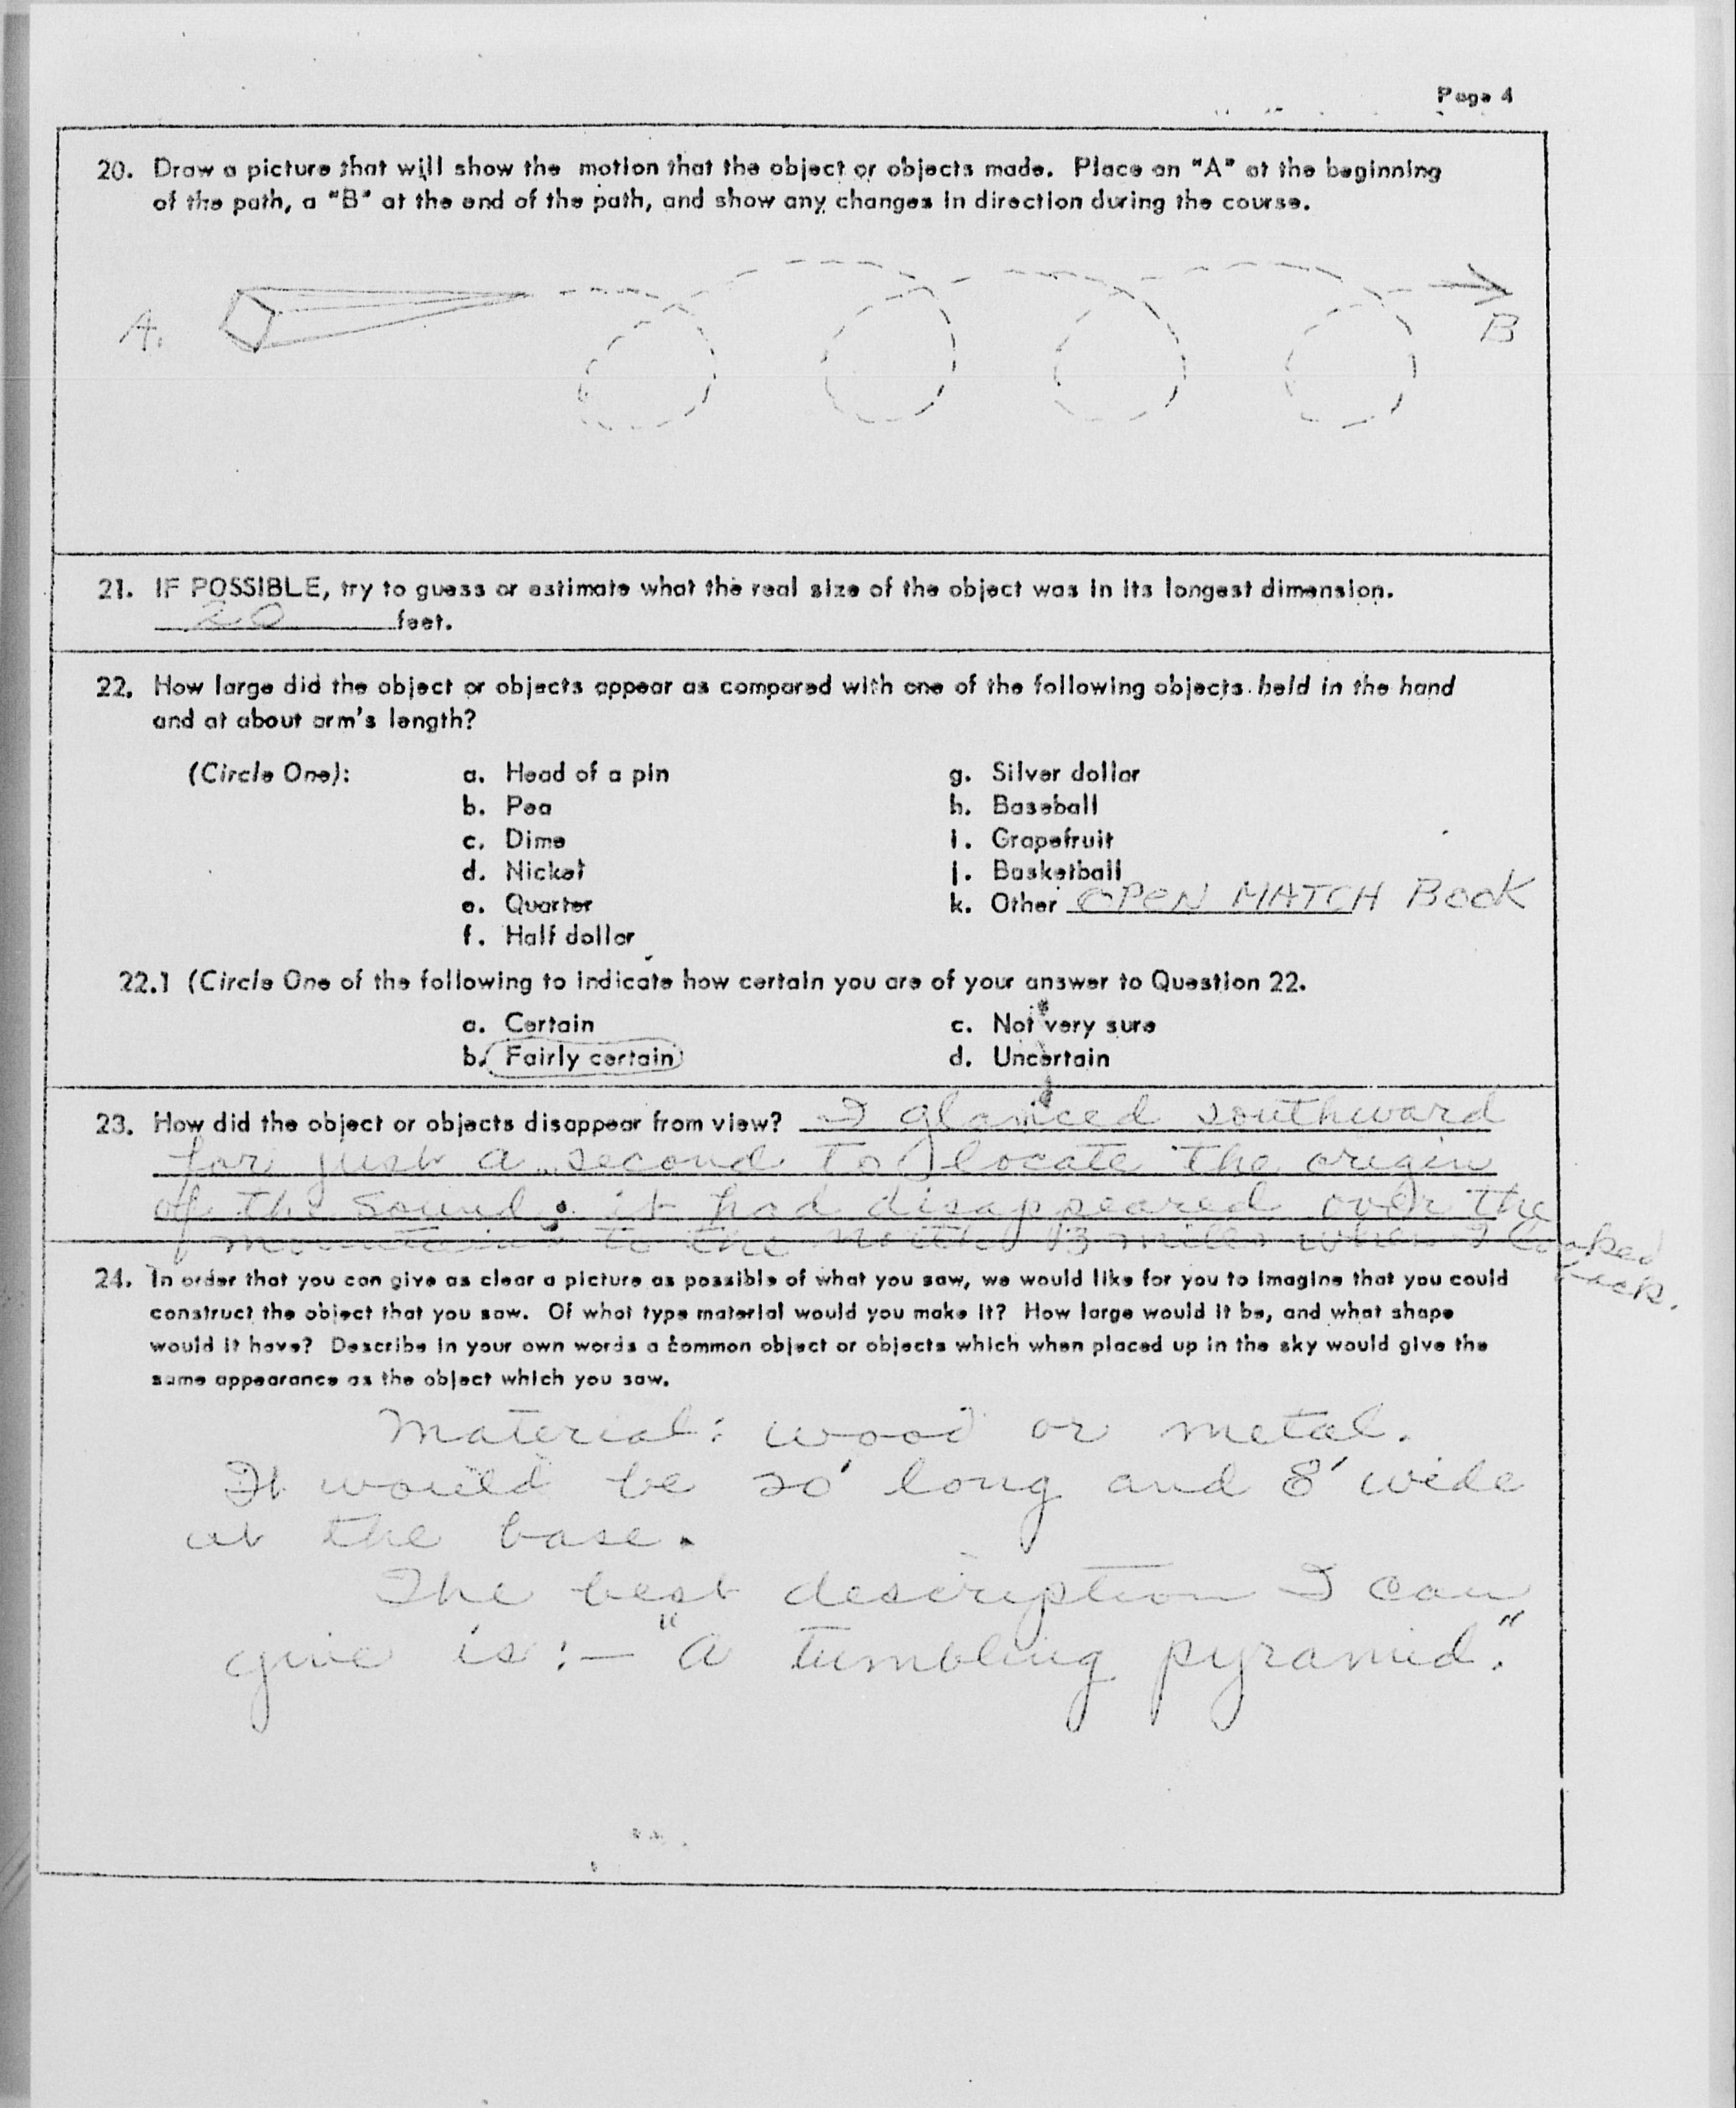 Page 4
20. Draw a picture that will show the motion that the object or objects made. Place an "A" at the beginning
of the path, a "B" at the end of the path, and show any changes in direction during the course.
A.
B
21. IF POSSIBLE, try to guess or estimate what the real size of the object was in its longest dimension.
20 feet.
22. How large did the object or objects appear as compared with one of the following objects held in the hand
and at about arm's length?
(Circle One):
a. Head of a pin
b. Pea
c. Dime
d. Nickel
e. Quarter
f. Half dollar
g. Silver dollar
h. Baseball
i. Grapefruit
j. Basketball
k. Other OPEN MATCH BOOK
22.1 (Circle One of the following to indicate how certain you are of your answer to Question 22.
a. Certain
b. Fairly certain
c. Not very sure
d. Uncertain
23. How did the object or objects disappear from view? I glanced southward
for just a second to locate the origin
of the sound; it had disappeared over the
mountains to the north 13 miles when I looked
back.
24. In order that you can give as clear a picture as possible of what you saw, we would like for you to imagine that you could
construct the object that you saw. Of what type material would you make it? How large would it be, and what shape
would it have? Describe in your own words a common object or objects which when placed up in the sky would give the
same appearance as the object which you saw.
Material: wood or metal.
It would be 20' long and 8' wide
at the base.
The best description I can
give is:— "a tumbling pyramid."